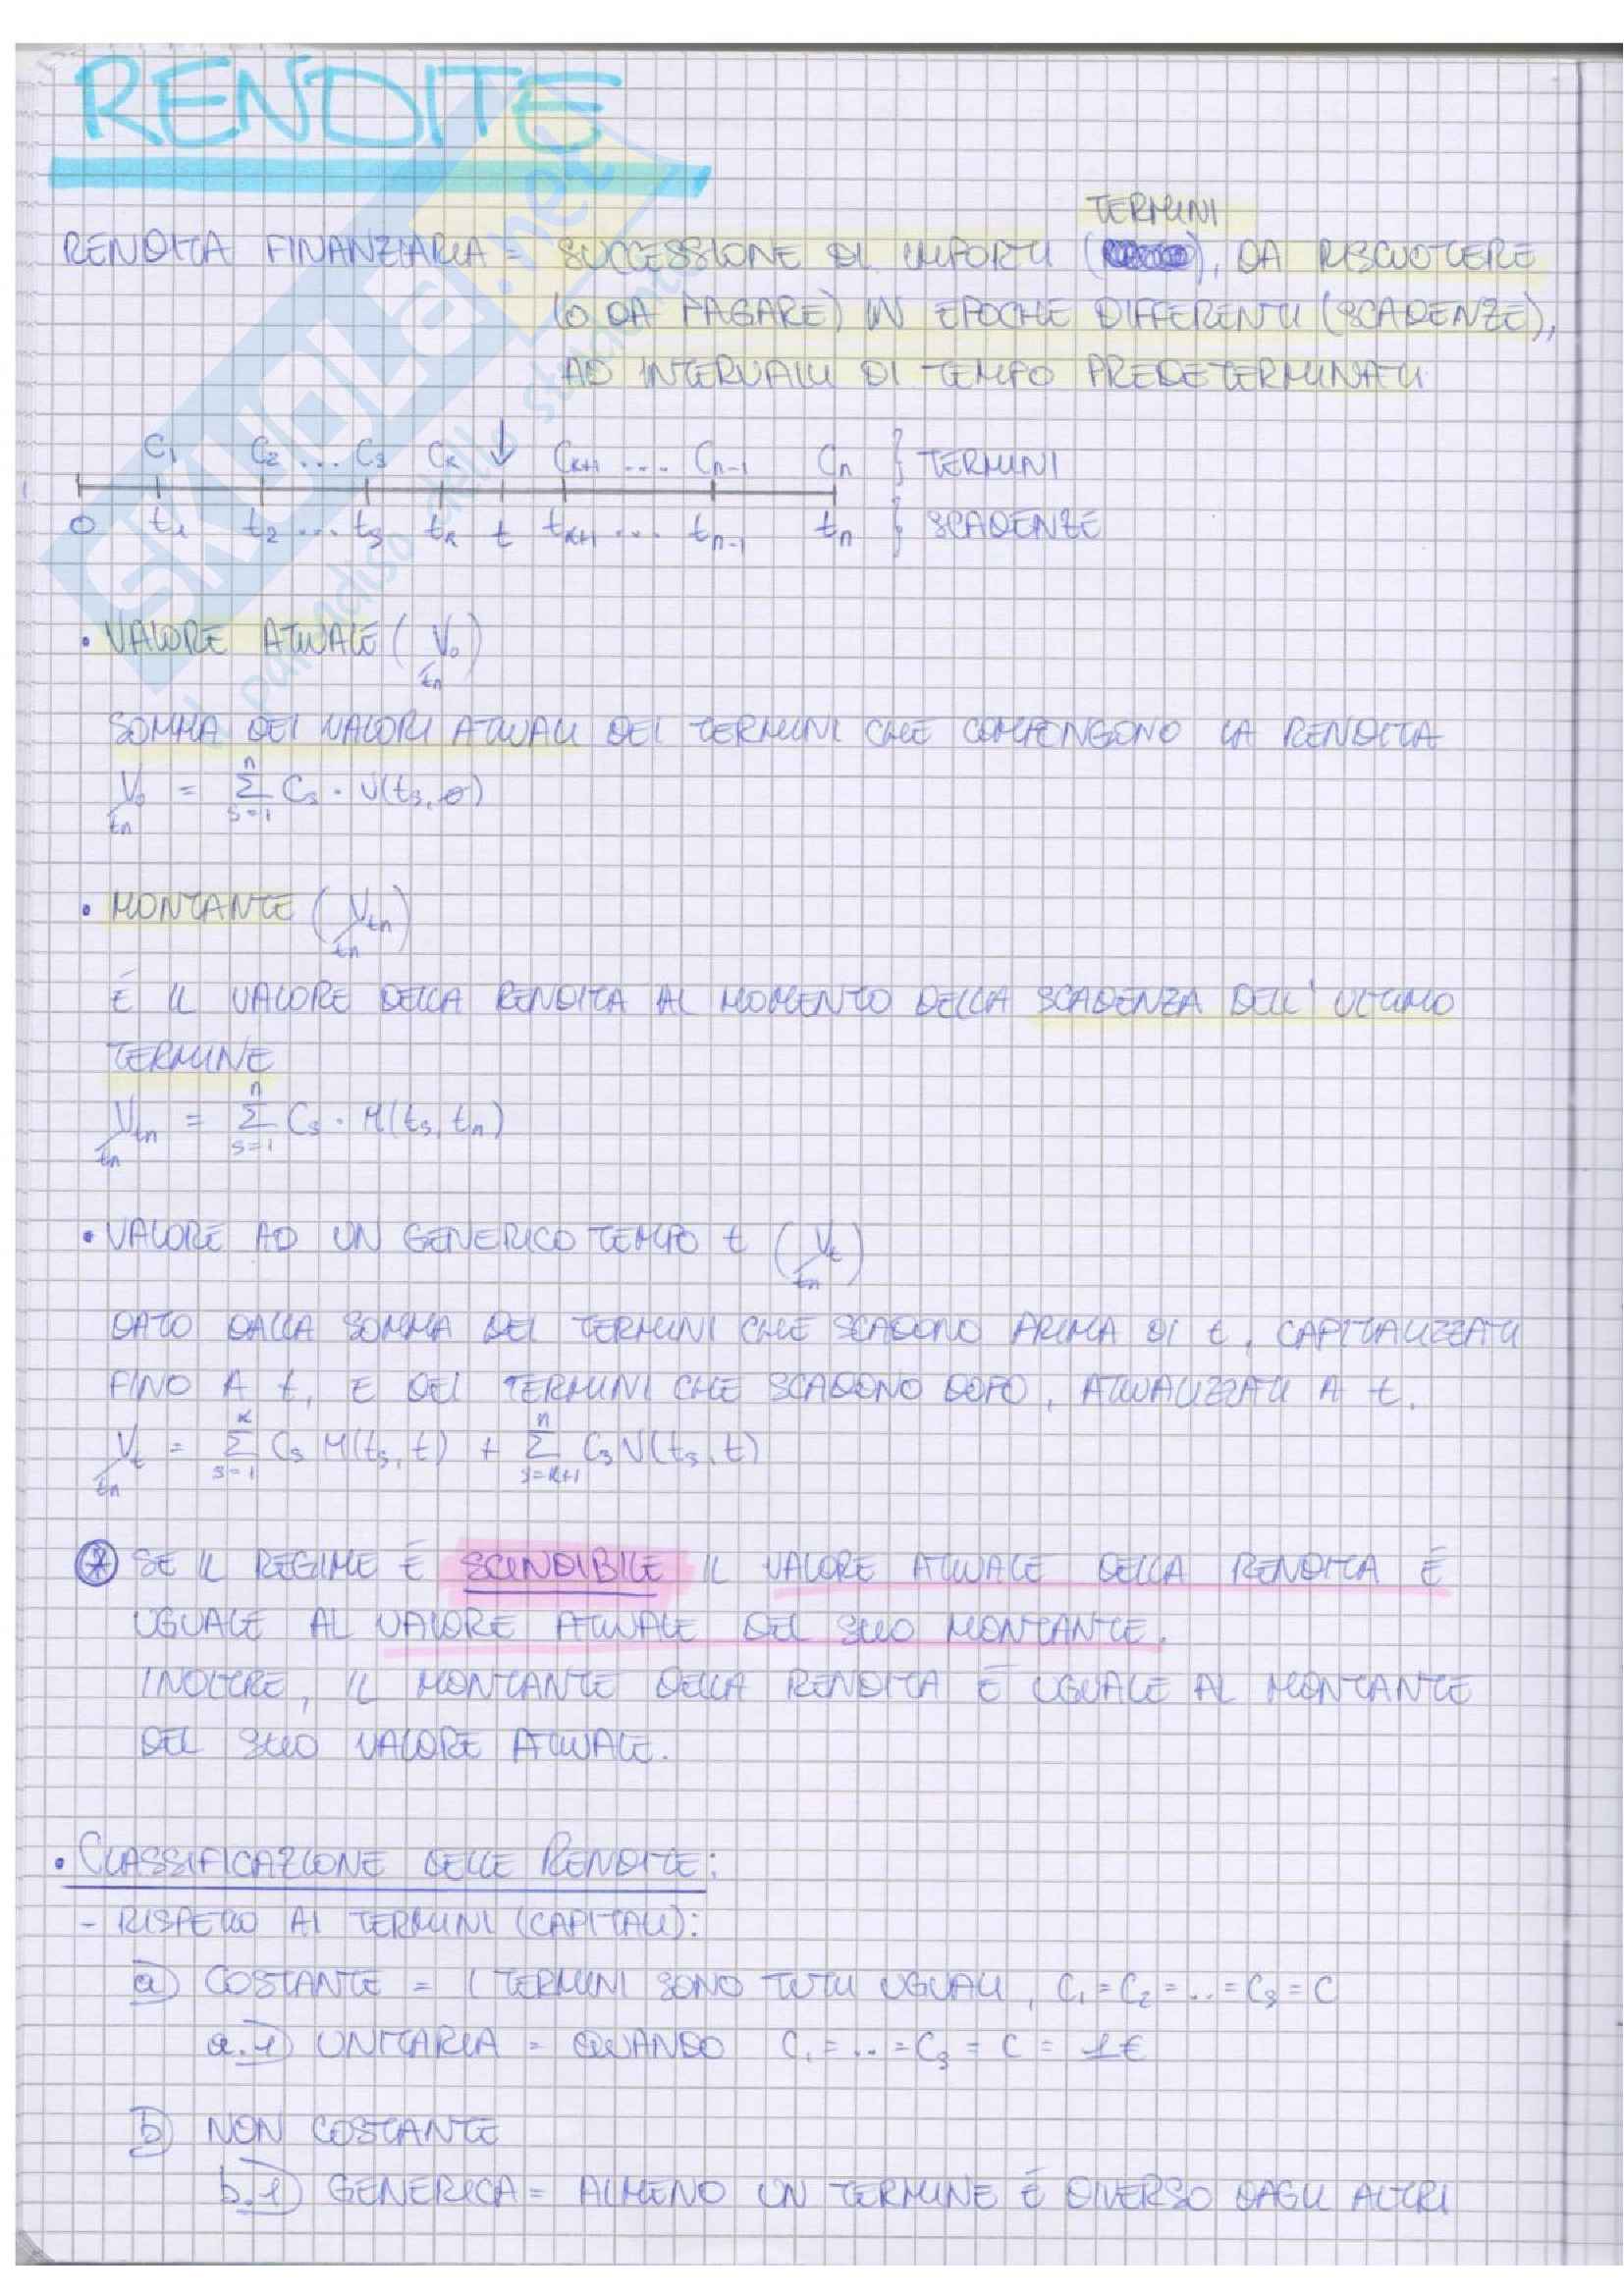 RENDITE
TERMINI
RENDITA FINANZIARIA = SUCCESSIONE DI IMPORTI ( ), DA RISCUOTERE
(O DA PAGARE) IN EPOCHE DIFFERENTI (SCADENZE),
AD INTERVALLI DI TEMPO PREDETERMINATI
C₁ C₂ ... Cs Cκ ↓ Cκ+1 .... Cn-1 Cn } TERMINI
0 t₁ t₂ ... ts tκ t tκ+1 ... tn-1 tn } SCADENZE
• VALORE ATTUALE ( V₀ )
tn
SOMMA DEI VALORI ATTUALI DEI TERMINI CHE COMPENGONO LA RENDITA
V₀ = Σ Cs · V(ts, 0)
tn s=1 n
• MONTANTE ( Vtn )
tn
É IL VALORE DELLA RENDITA AL MOMENTO DELLA SCADENZA DELL'ULTIMO
TERMINE
Vtn = Σ Cs · M(ts, tn)
tn s=1 n
• VALORE AD UN GENERICO TEMPO t ( Vt )
tn
DATO DALLA SOMMA DEI TERMINI CHE SCADONO PRIMA DI t, CAPITALIZZATI
FINO A t, E DEI TERMINI CHE SCADONO DOPO, ATTUALIZZATI A t.
Vt = Σ Cs M(ts, t) + Σ Cs V(ts, t)
tn s=1 κ s=κ+1 n
* SE IL REGIME É SCINDIBILE IL VALORE ATTUALE DELLA RENDITA É
UGUALE AL VALORE ATTUALE DEL SUO MONTANTE.
INOLTRE, IL MONTANTE DELLA RENDITA É UGUALE AL MONTANTE
DEL SUO VALORE ATTUALE.
• CLASSIFICAZIONE DELLE RENDITE:
- RISPETTO AI TERMINI (CAPITALI):
a) COSTANTE = I TERMINI SONO TUTTI UGUALI, C₁=C₂=...=Cs=C
a.1) UNITARIA = QUANDO C₁=...=Cs = C = 1€
b) NON COSTANTE
b.1) GENERICA = ALMENO UN TERMINE É DIVERSO DAGLI ALTRI
SKUOLA.net
il paradiso dello studente